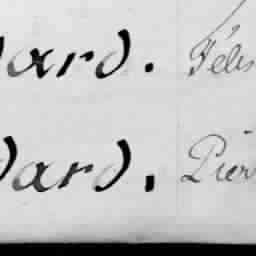 Dard. Félis
Dard. Pier